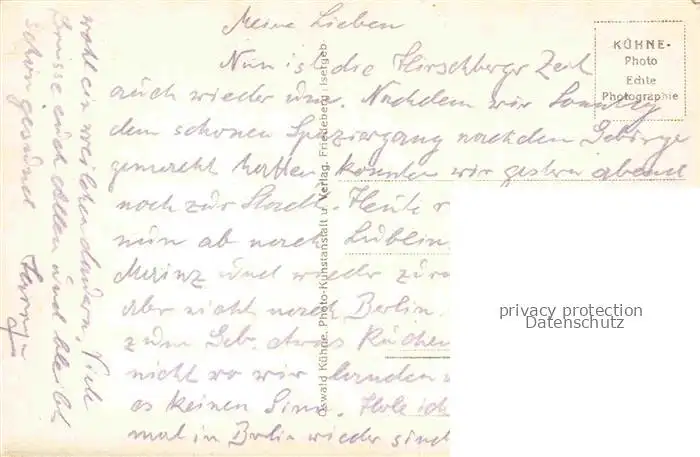 Meine Lieben
Nun ist die Hirschberger Zeit
auch wieder um. Nachdem wir Sonntag
den schönen Spaziergang nach dem Gebirge
gemacht hatten konnten wir gestern abend
noch zur Stadt. Heute
nun ab nach Lublin.
Mainz und wieder
aber nicht nach Berlin.
zum Geb. etwas Kuchen
nicht wo wir landen
es keinen Sinn. Hole ich
mal in Berlin wieder sind
wohl ein weilchen dauern. Viele
Grüsse euch allen und bleibt
schön gesund
KÜHNE-
Photo
Echte
Photographie
Oswald Kühne, Photo-Kunstanstalt u. Verlag, Friedeberg Isergeb
privacy protection
Datenschutz